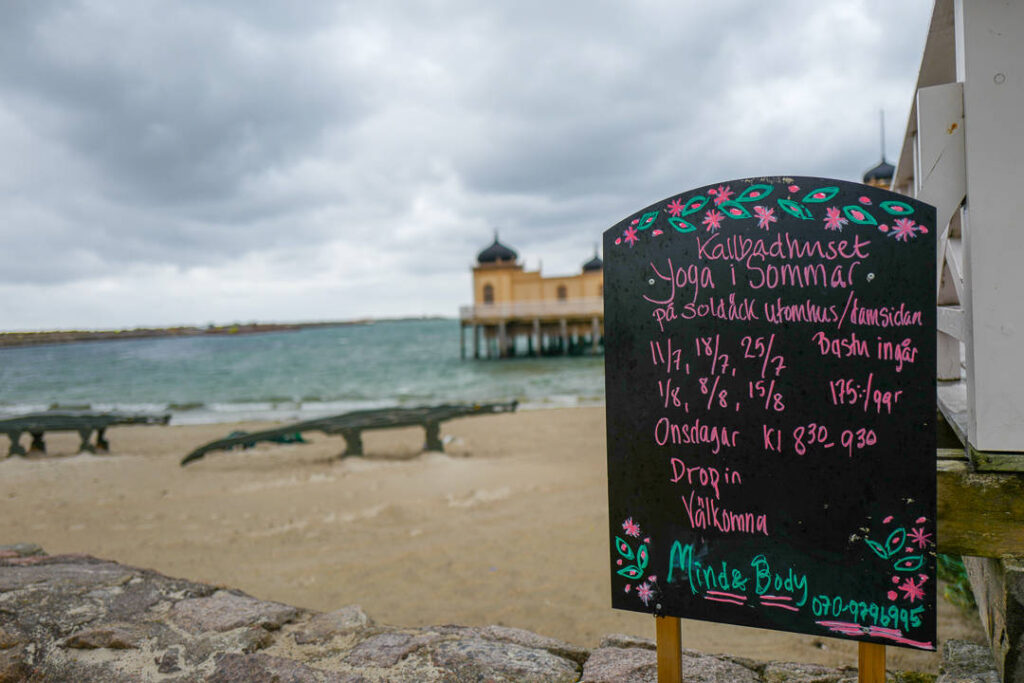 Kallbadhuset
Yoga i Sommar
på soldäck utomhus/damsidan
11/7, 18/7, 25/7 Bastu ingår
1/8, 8/8, 15/8 175:-/ggr
Onsdagar kl 8³⁰-9³⁰
Dropin
Välkomna
Mind & Body
070-9796995